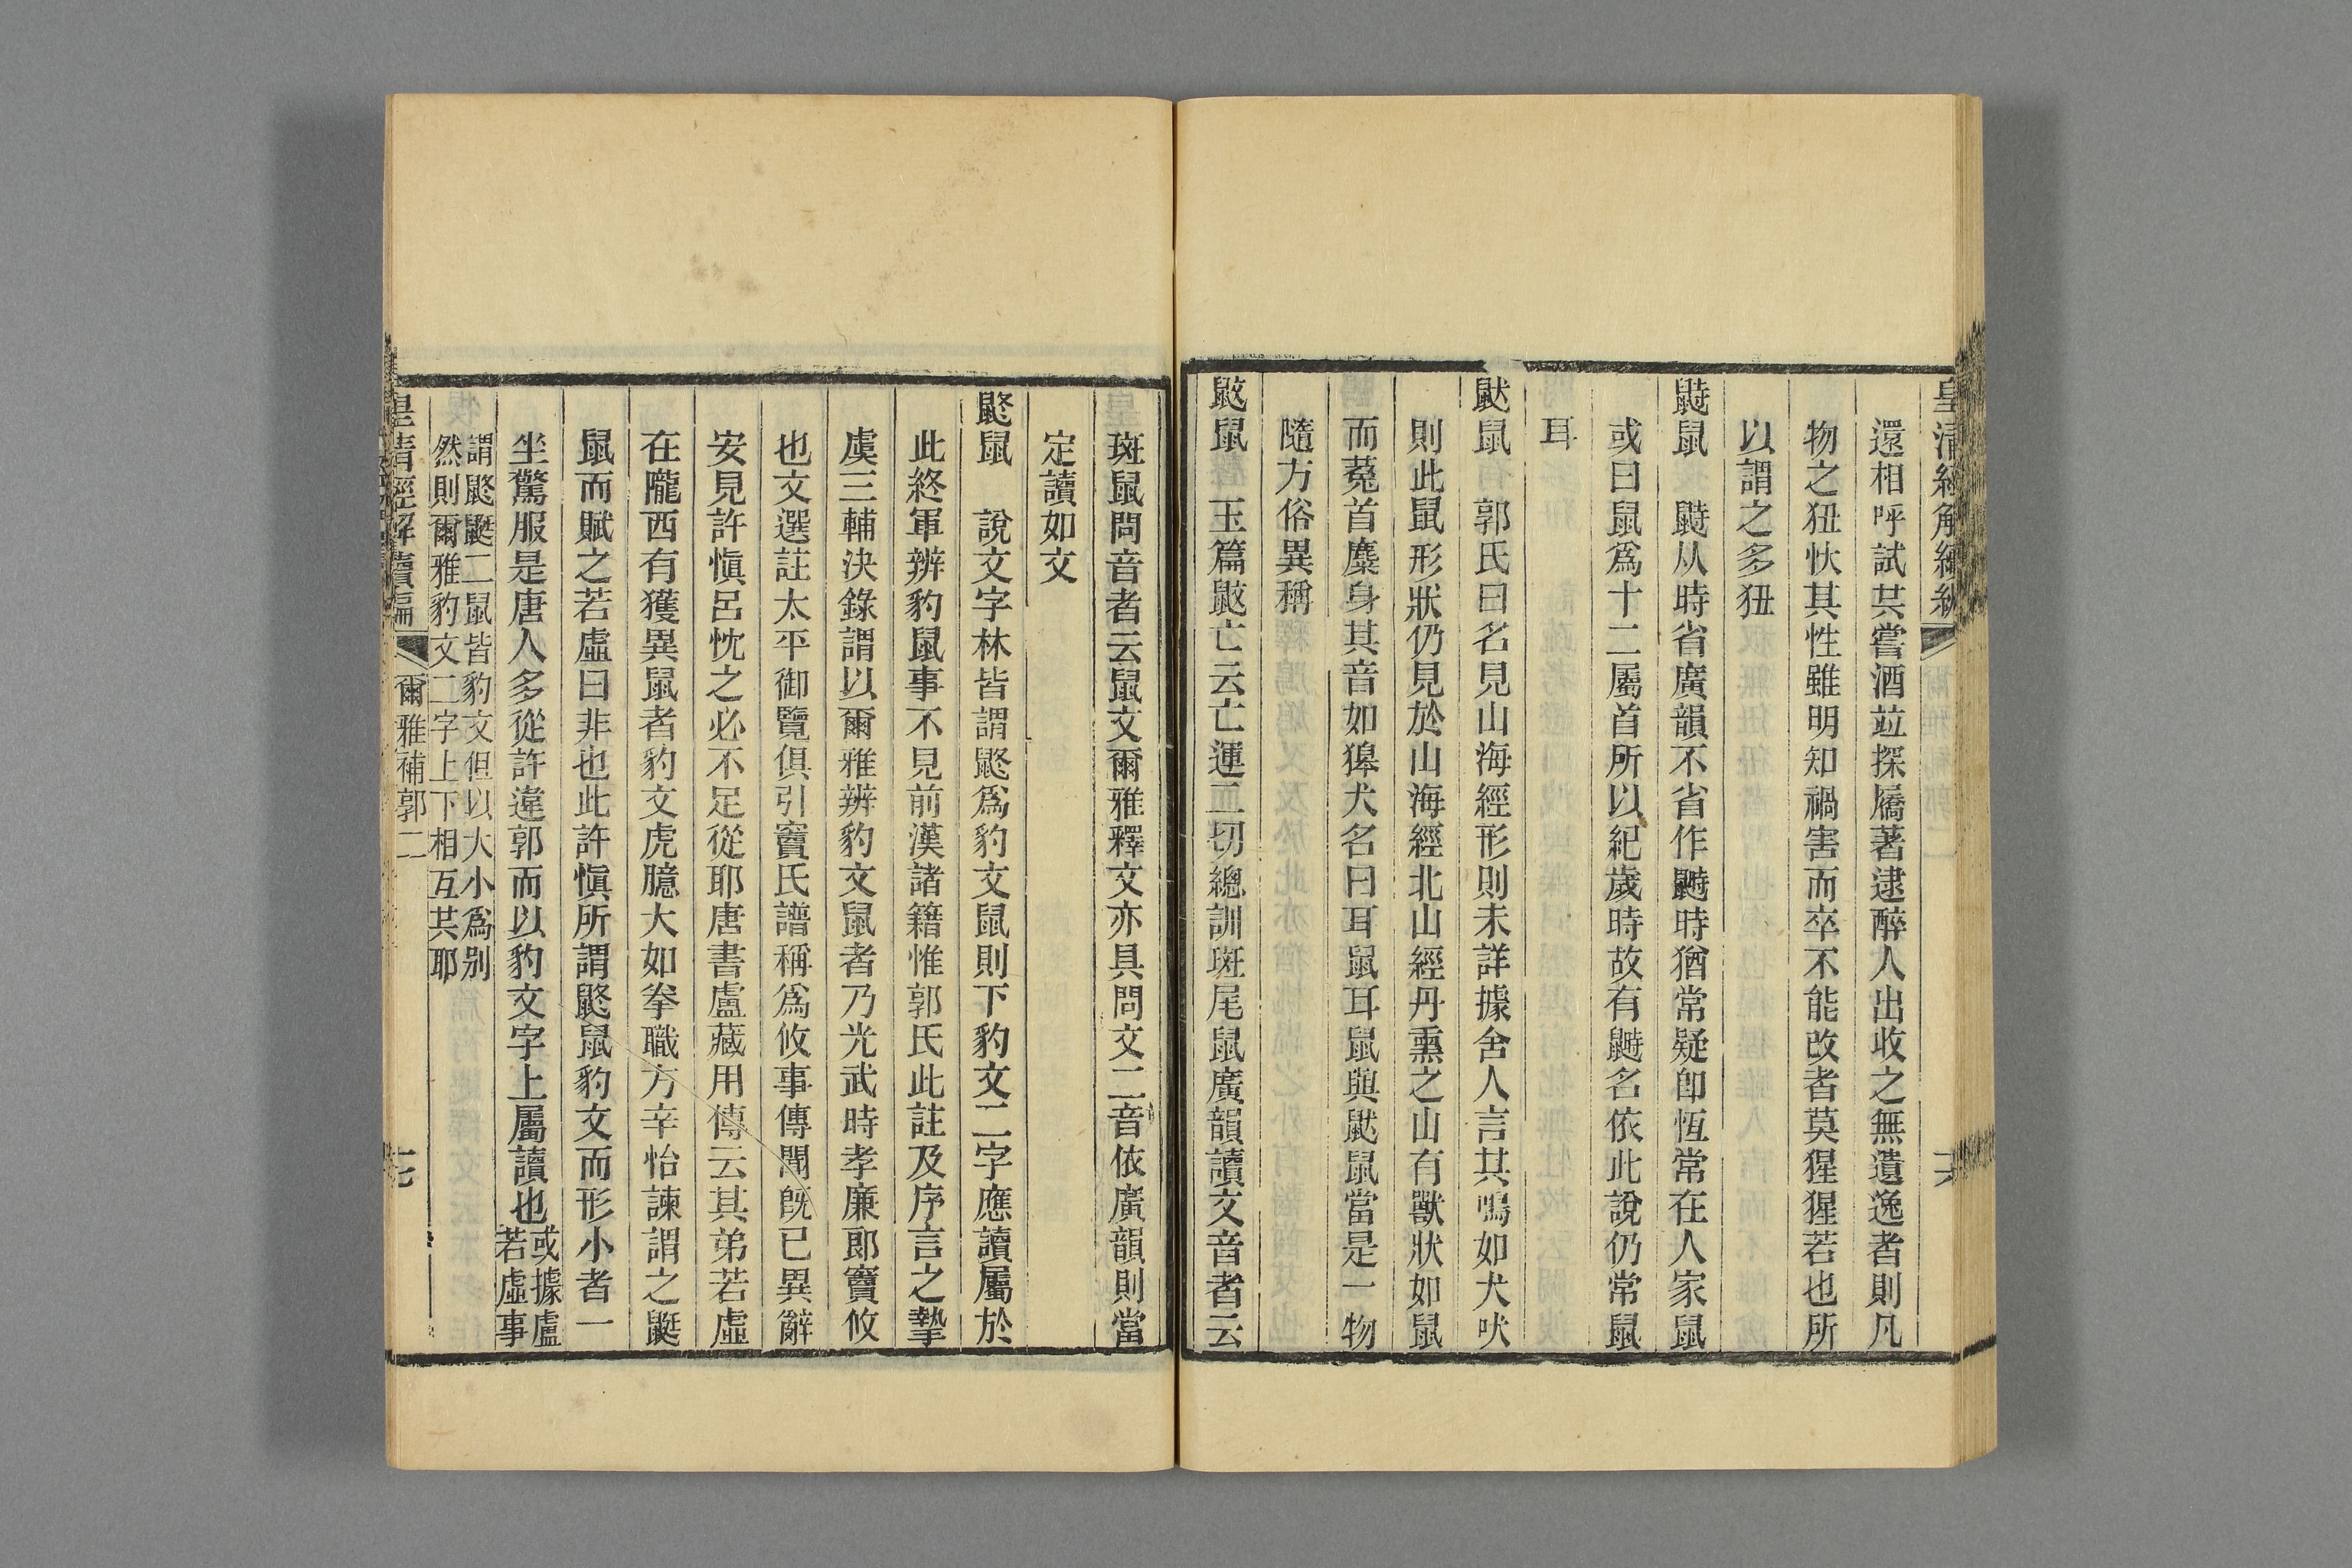 皇清經解續編
六
還相呼試共嘗酒竝探屩著逮醉人出收之無遺逸者則凡
物之狃忕其性雖明知禍害而卒不能改者莫猩猩若也所
以謂之多狃
鼭鼠 鼭从時省廣韻不省作鼭時猶常疑卽恆常在人家鼠
或曰鼠爲十二屬首所以紀歲時故有鼭名依此說仍常鼠
耳
鼣鼠 郭氏曰名見山海經形則未詳據舍人言其鳴如犬吠
則此鼠形狀仍見於山海經北山經丹熏之山有獸狀如鼠
而菟首麋身其音如獆犬名曰耳鼠耳鼠與鼣鼠當是一物
隨方俗異稱
鼤鼠 玉篇鼤亡云亡運二切總訓斑尾鼠廣韻讀文音者云
斑鼠問音者云鼠文爾雅釋文亦具問文二音依廣韻則當
定讀如文
鼨鼠 說文字林皆謂鼨爲豹文鼠則下豹文二字應讀屬於
此終軍辨豹鼠事不見前漢諸籍惟郭氏此註及序言之摯
虞三輔決錄謂以爾雅辨豹文鼠者乃光武時孝廉郞竇攸
也文選註太平御覽俱引竇氏譜稱爲攸事傳聞旣已異辭
安見許愼呂忱之必不足從耶唐書盧藏用傳云其弟若虛
在隴西有獲異鼠者豹文虎臆大如拳職方辛怡諫謂之鼮
鼠而賦之若虛曰非也此許愼所謂鼨鼠豹文而形小者一
坐驚服是唐人多從許違郭而以豹文字上屬讀也或據盧
若虛事
謂鼨鼮二鼠皆豹文但以大小爲别
然則爾雅豹文二字上下相互共耶
皇清經解續編
爾雅補郭二
七